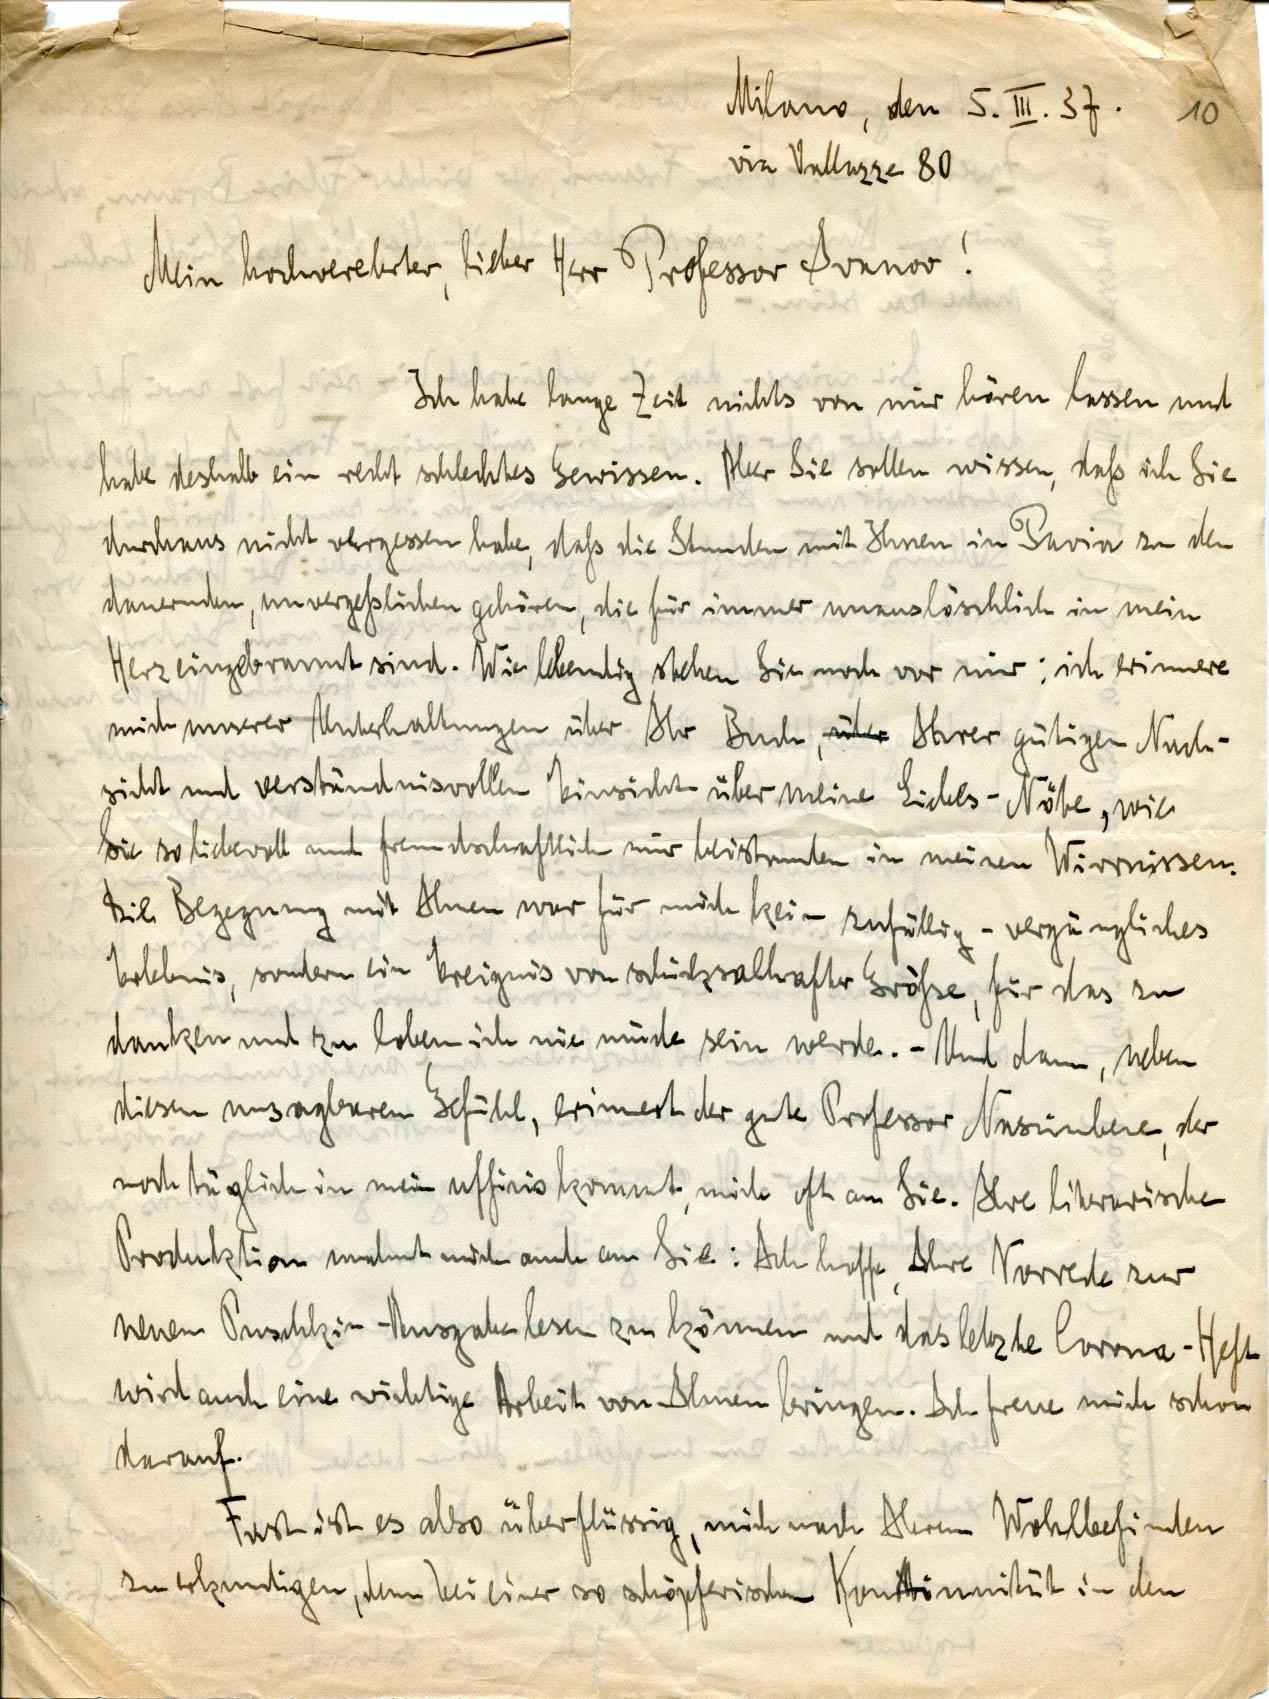 Milano, den 5. III. 37.
10
via Vallazze 80
Mein hochverehrter, lieber Herr Professor Ivanov!
Ich habe lange Zeit nichts von mir hören lassen und
habe deshalb ein recht schlechtes Gewissen. Aber Sie sollen wissen, daß ich Sie
durchaus nicht vergessen habe, daß die Stunden mit Ihnen in Pavia zu den
dauernden, unvergeßlichen gehören, die für immer unauslöschlich in mein
Herz eingebrannt sind. Wie lebendig stehen Sie noch vor mir: ich erinnere
mich unserer Unterhaltungen über Ihr Buch, über Ihrer gütigen Nach-
sicht und verständnisvollen Einsicht über meine Liebes-Nöte, wie
Sie so liebevoll und freundschaftlich mir beistanden in meinen Wirrnissen.
Die Begegnung mit Ihnen war für mich kein zufällig-vergängliches
Erlebnis, sondern ein Ereignis von schicksalhafter Größe, für das zu
danken und zu loben ich nie müde sein werde. - Und dann, neben
diesen unsagbaren Gefühl, erinnert der gute Professor, der
noch täglich in mein uffizio kommt, mich oft an Sie. Ihre literarische
Produktion mahnt mich auch an Sie: Ich hoffe, Ihre Vorrede zur
neuen Puschkin-Ausgabe lesen zu können und das letzte Corona-Heft
wird auch eine wichtige Arbeit von Ihnen bringen. Ich freue mich schon
darauf.
Fast ist es also überflüssig, mich nach Ihrem Wohlbefinden
zu erkundigen, denn bei einer so schöpferischen Kontinuität in den